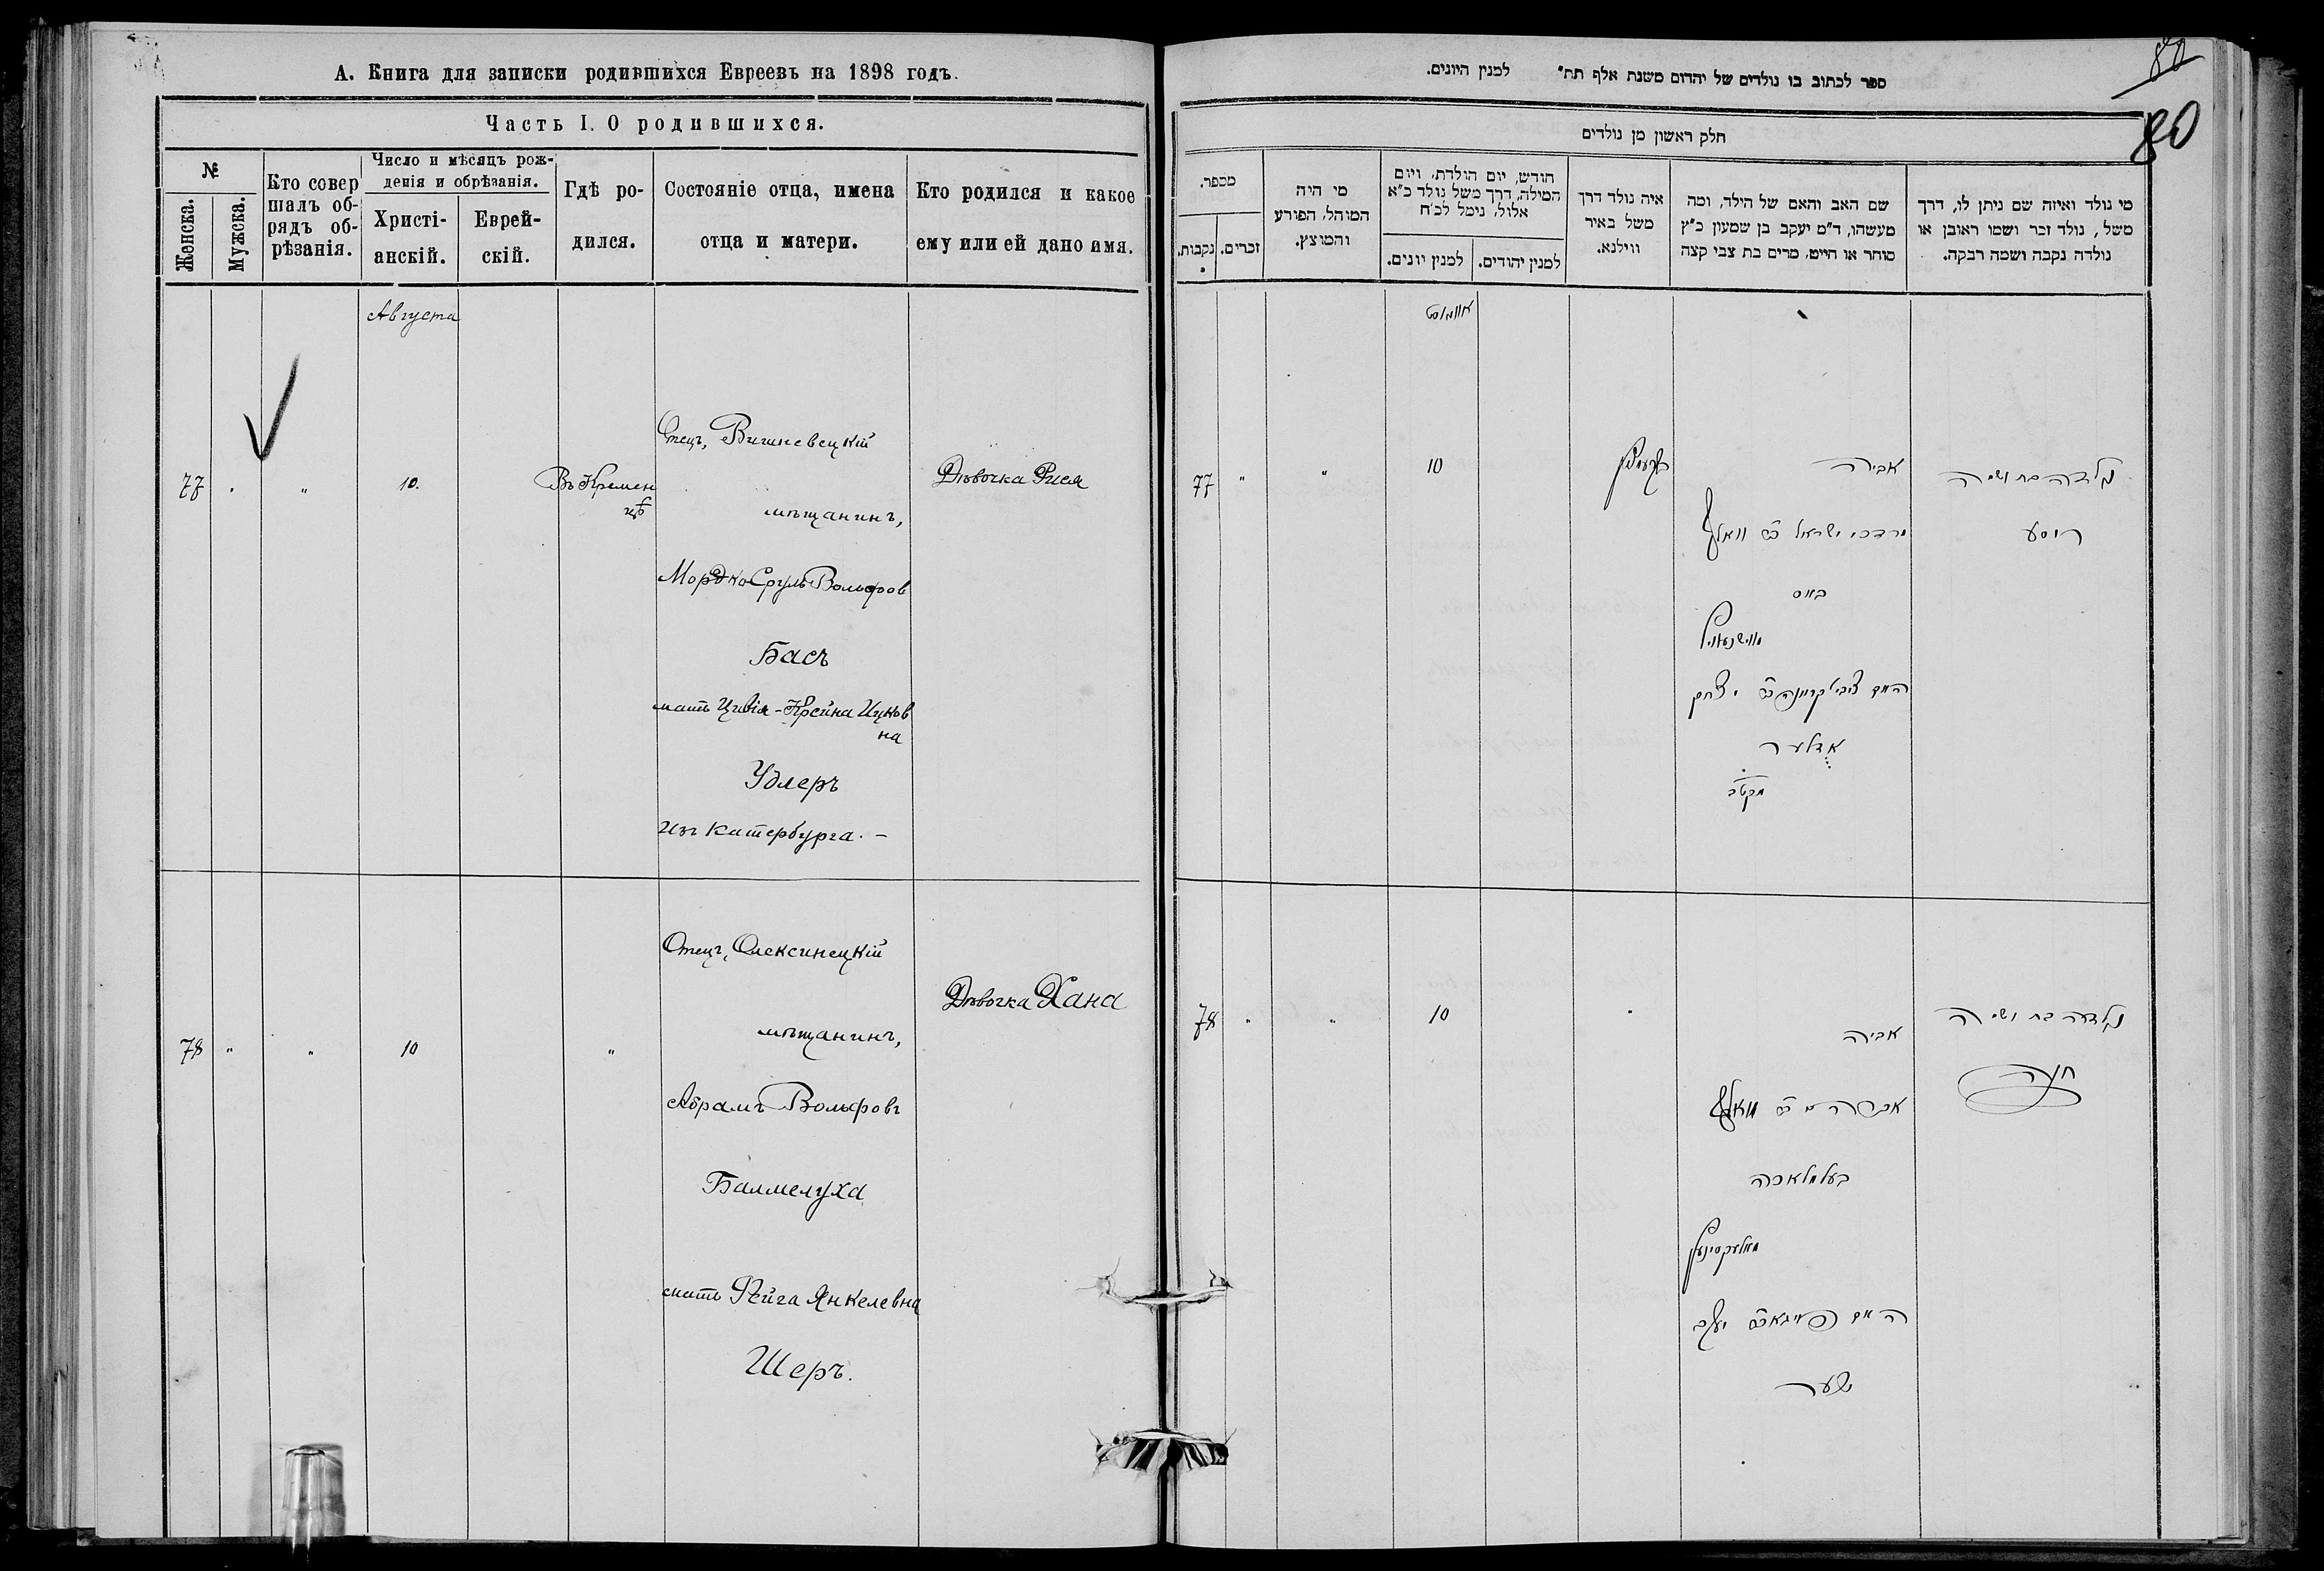 А. Книга для записки родившихся Евреевъ на 1898 годъ.
Часть I. О родившихся.
№
Женска.
Мужска.
Кто совер
шалъ об-
рядъ об-
рѣзанія.
Число и мѣсяцъ рож-
денія и обрѣзанія.
Христі-
анскій.
Еврей-
скій.
Гдѣ ро-
дился.
Состояніе отца, имена
отца и матери.
Кто родился и какое
ему или ей дано имя.
Августа
77 " " 10.
Въ Кремен
цѣ
Отецъ, Вишневецкій
мѣщанинъ,
Мордко Сруль Вольфов
Басъ
мать Цивія-Крейна Ицков
на
Удлеръ
изъ Катербурга. –
Дѣвочка Рися
78 " " 10 "
Отецъ, Олексинецкій
мѣщанинъ,
Абрамъ Вольфовъ
Балмелуха
мать Фейга Янкелевна
Шеръ.
Дѣвочка Хана
80
80
ספר לכתוב בו נולדים של יהדום משנת אלף תת" למנין היונים.
חלק ראשון מן נולדים
מי נולד ואיזה שם ניתן לו, דרך
משל, נולד זכר ושמו ראובן או
נולדה נקבה ושמה רבקה.
שם האב והאם של הילד, ומה
מעשהו, ד"מ יעקב בן שמעון כ"ץ
סוחר או חייט, מרים בת צבי קצה
איה נולד דרך
משל באיר
ווילנא.
חודש, יום הולדת, ויום
המילה, דרך משל נולד כ"א
אלול, נימל לכ"ח
למנין יהודים.
למנין יונים.
מי היה
המוהל, הפורע
והמוצץ.
מספר.
זכרים.
נקבות.
אווגוסט
77 " " 10
קרעמניץ
אביה
מרדכי ישראל ב"ר וואלף
באס
מווישנעוויץ
האם צביי' קריינה ב"ר יצחק
אדלער
נולדה בת ושמה
רוסע
78 " " 10 "
אביה
אברהם ב"ר וואלף
בעלמלאכה
מאלעקסיניץ
האם פייגא ב"ר יעקב
שער
נולדה בת ושמה
חנה